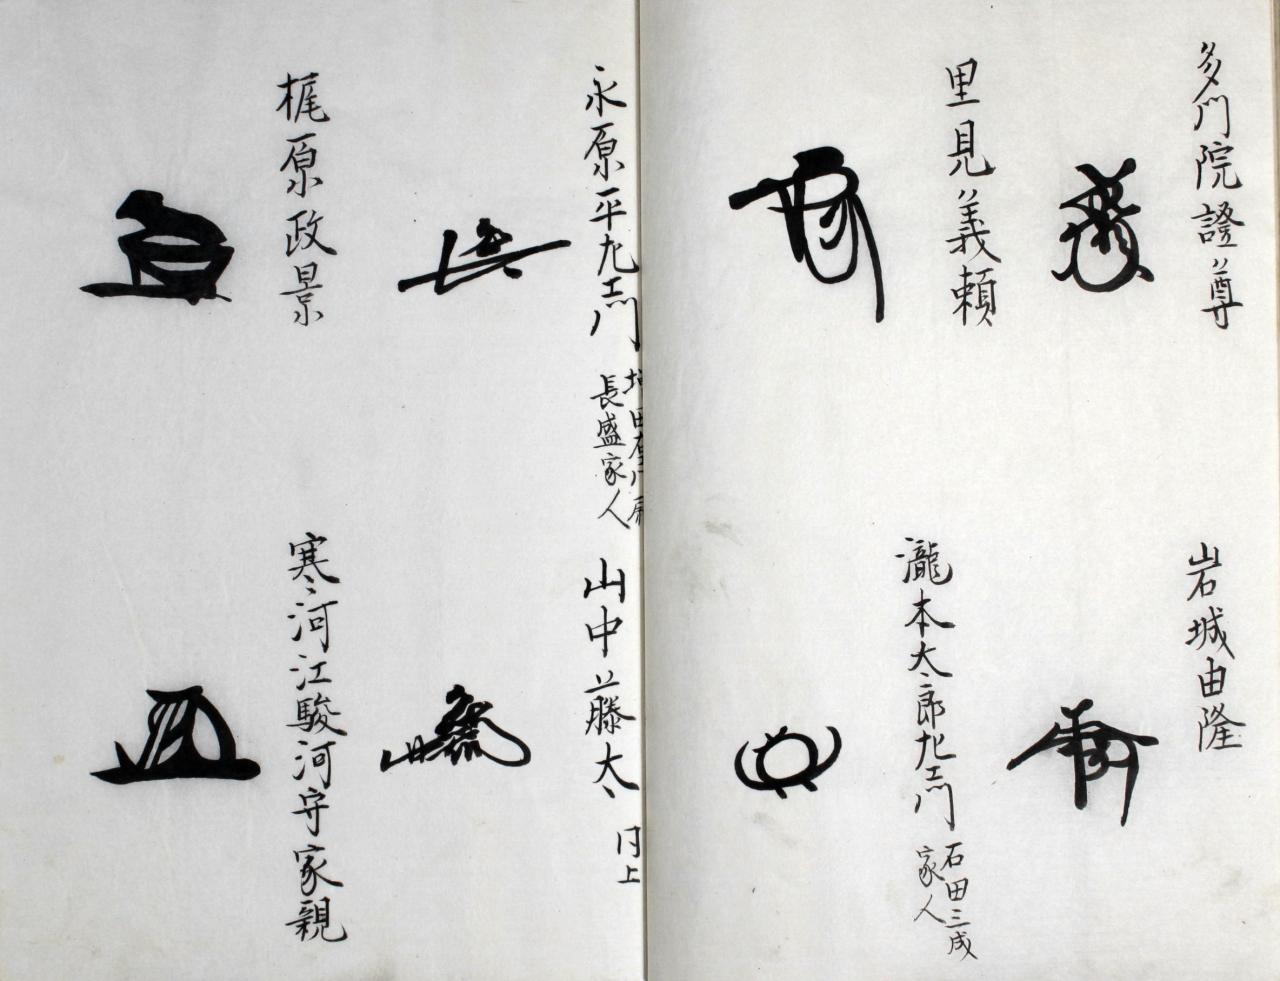 多門院證尊
岩城由隆
里見義頼
瀧本太郎左衛門
石田三成
家人
永原平左衛門
長盛家人
山中藤太
同上
梶原政景
寒河江駿河守家親